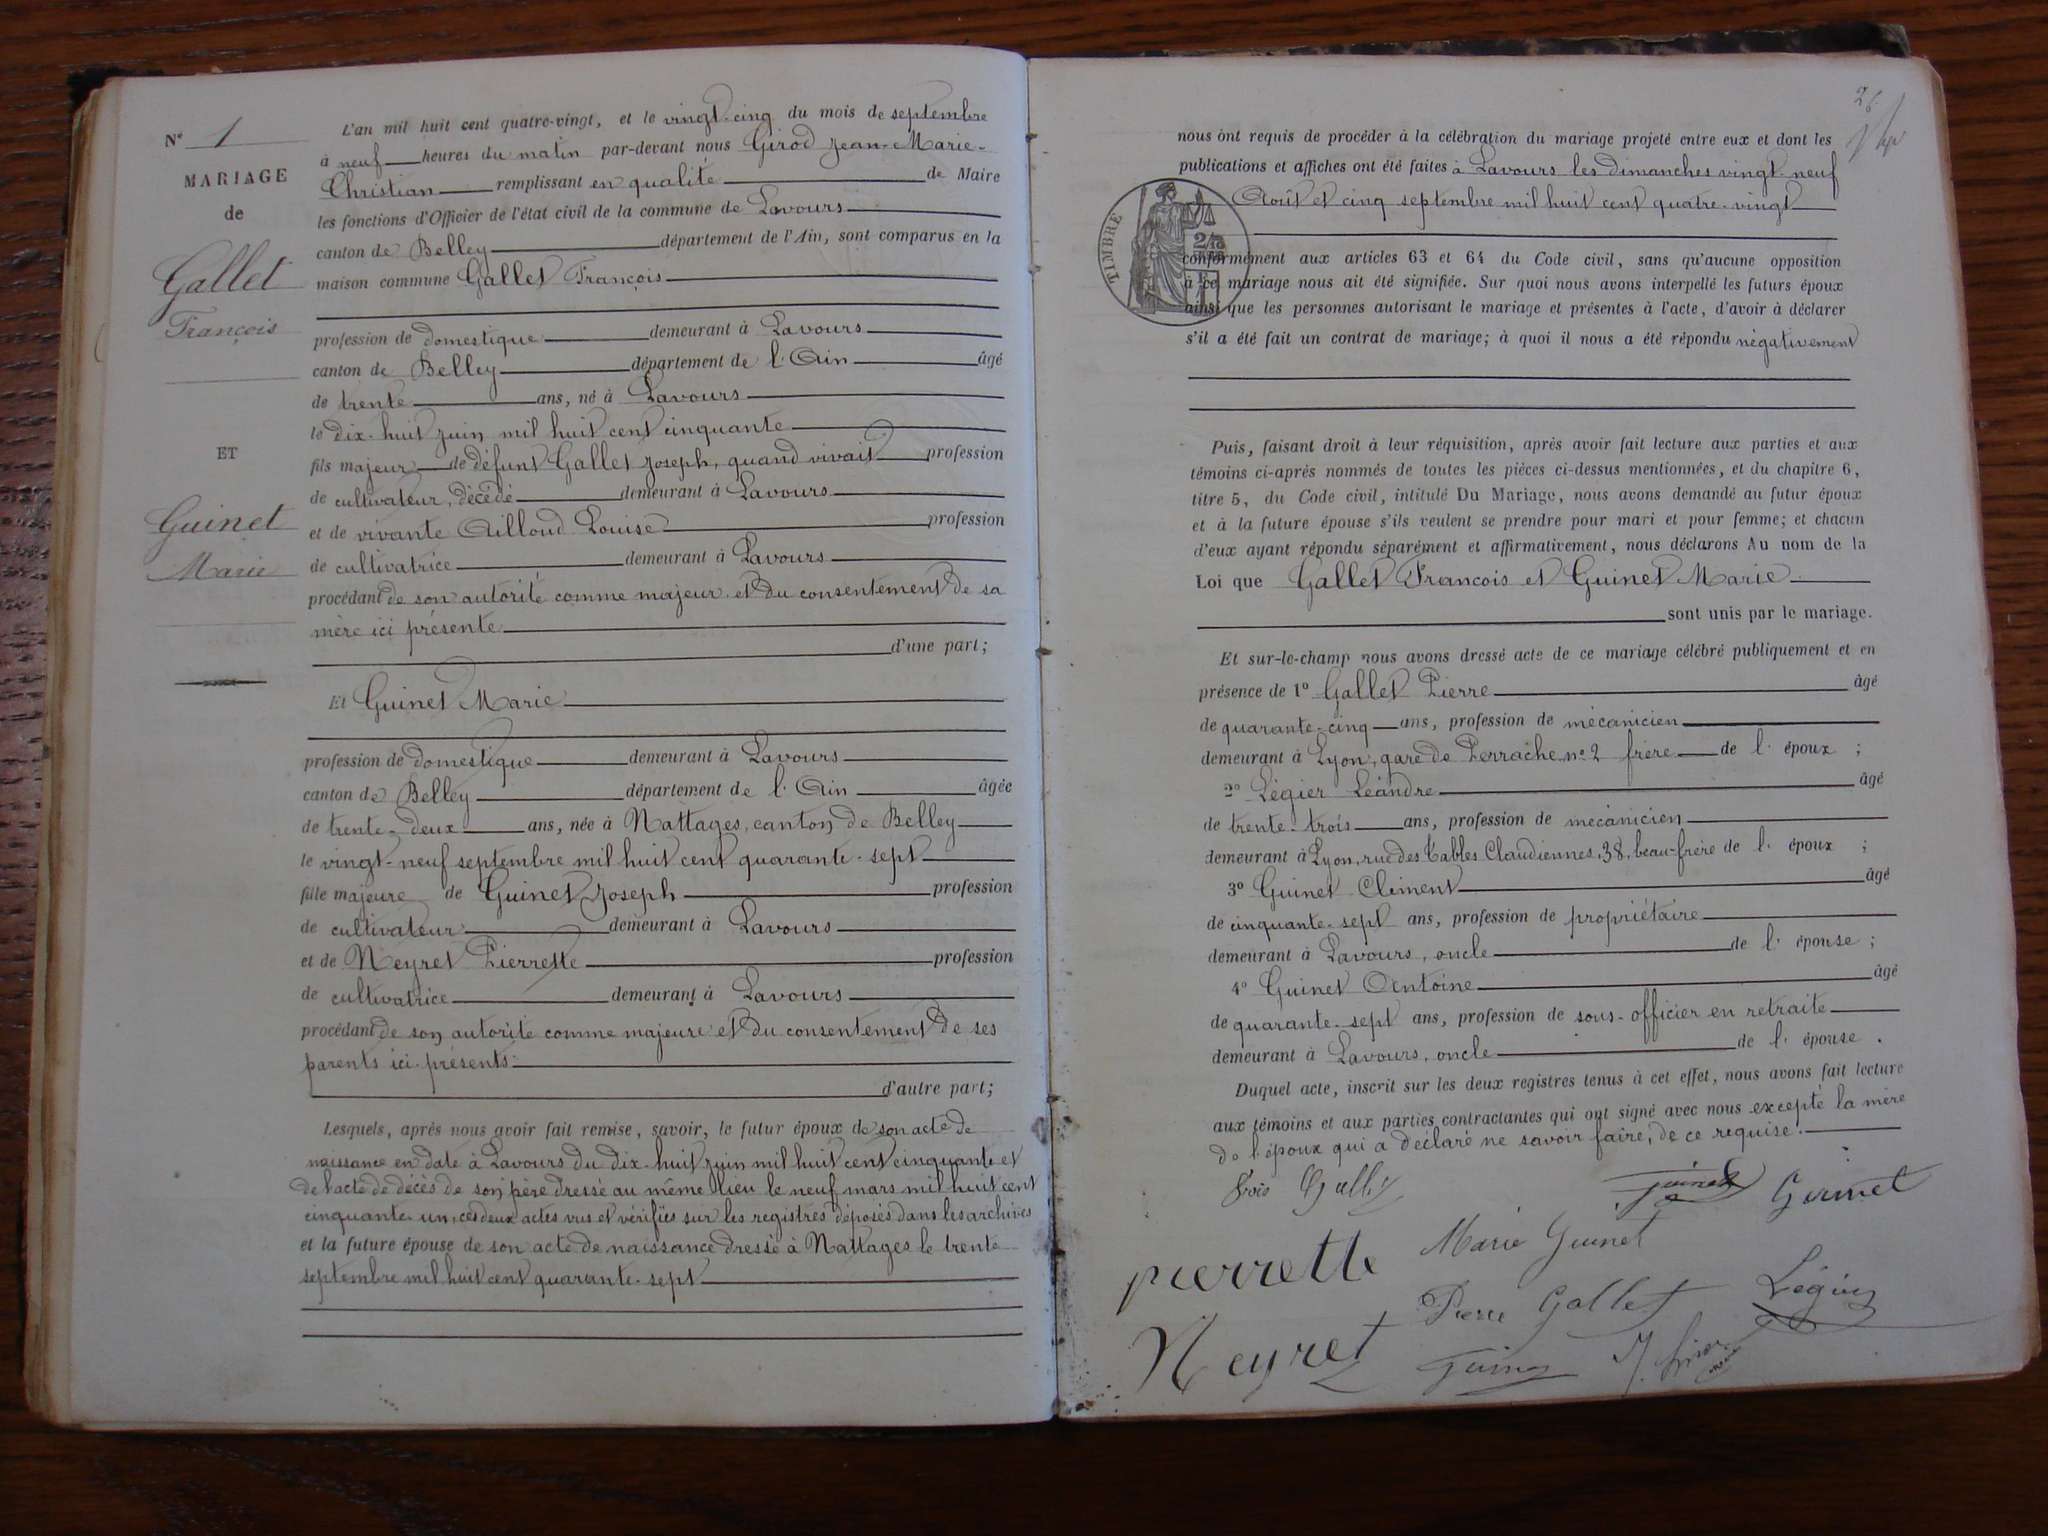 N° 1
MARIAGE
de
Gallet
François
ET
Guinet
Marie
L'an mil huit cent quatre-vingt, et le vingt-cinq du mois de septembre
à neuf heures du matin par-devant nous Girod Jean-Marie-
Christian remplissant en qualité de Maire
les fonctions d'Officier de l'état civil de la commune de Lavours
canton de Belley département de l'Ain, sont comparus en la
maison commune Gallet François
profession de domestique demeurant à Lavours
canton de Belley département de l'Ain âgé
de trente ans, né à Lavours
le dix-huit juin mil huit cent cinquante
fils majeur de défunt Gallet Joseph, quand vivait profession
de cultivateur, décédé demeurant à Lavours
et de vivante Ailloud Louise profession
de cultivatrice demeurant à Lavours
procédant de son autorité comme majeur et du consentement de sa
mère ici présente
d'une part;
Et Guinet Marie
profession de domestique demeurant à Lavours
canton de Belley département de l'Ain âgée
de trente-deux ans, née à Nattages, canton de Belley
le vingt-neuf septembre mil huit cent quarante-sept
fille majeure de Guinet Joseph profession
de cultivateur demeurant à Lavours
et de Neyret Pierrette profession
de cultivatrice demeurant à Lavours
procédant de son autorité comme majeure et du consentement de ses
parents ici présents
d'autre part;
Lesquels, après nous avoir fait remise, savoir, le futur époux de son acte de
naissance en date à Lavours du dix-huit juin mil huit cent cinquante et
de l'acte de décès de son père dressé au même lieu le neuf mars mil huit cent
cinquante-un, ces deux actes vus et vérifiés sur les registres déposés dans les archives
et la future épouse de son acte de naissance dressé à Nattages le trente
septembre mil huit cent quarante-sept
26
nous ont requis de procéder à la célébration du mariage projeté entre eux et dont les
publications et affiches ont été faites à Lavours les dimanches vingt-neuf
Août et cinq septembre mil huit cent quatre-vingt
TIMBRE
conformément aux articles 63 et 64 du Code civil, sans qu'aucune opposition
à ce mariage nous ait été signifiée. Sur quoi nous avons interpellé les futurs époux
ainsi que les personnes autorisant le mariage et présentes à l'acte, d'avoir à déclarer
s'il a été fait un contrat de mariage; à quoi il nous a été répondu négativement
Puis, faisant droit à leur réquisition, après avoir fait lecture aux parties et aux
témoins ci-après nommés de toutes les pièces ci-dessus mentionnées, et du chapitre 6,
titre 5, du Code civil, intitulé Du Mariage, nous avons demandé au futur époux
et à la future épouse s'ils veulent se prendre pour mari et pour femme; et chacun
d'eux ayant répondu séparément et affirmativement, nous déclarons Au nom de la
Loi que Gallet François et Guinet Marie
sont unis par le mariage.
Et sur-le-champ nous avons dressé acte de ce mariage célébré publiquement et en
présence de 1° Gallet Pierre âgé
de quarante-cinq ans, profession de mécanicien
demeurant à Lyon, gare de Perrache n° 2 frère de l'époux;
2° Légier Léandre âgé
de trente-trois ans, profession de mécanicien
demeurant à Lyon, rue des Tables Claudiennes, 38, beau-frère de l'époux;
3° Guinet Clément âgé
de cinquante-sept ans, profession de propriétaire
demeurant à Lavours, oncle de l'épouse;
4° Guinet Antoine âgé
de quarante-sept ans, profession de sous-officier en retraite
demeurant à Lavours, oncle de l'épouse.
Duquel acte, inscrit sur les deux registres tenus à cet effet, nous avons fait lecture
aux témoins et aux parties contractantes qui ont signé avec nous excepté la mère
de l'époux qui a déclaré ne savoir faire, de ce requise.
Guinet Guinet
Marie Guinet
pierrette
Pierre Gallet Légier
Neyret